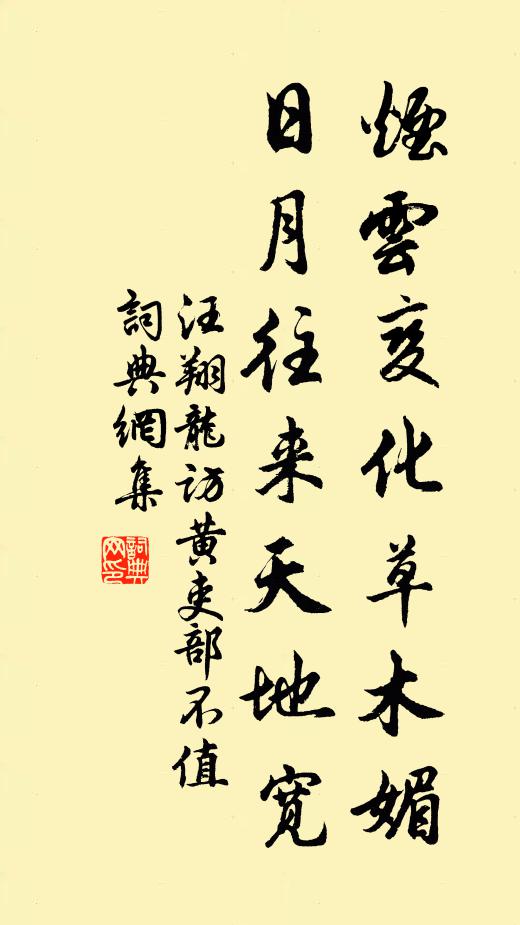 煙雲变化草木媚
日月往来天地寬
汪翔龍访黄吏部不值
詞典網集
詞典網印